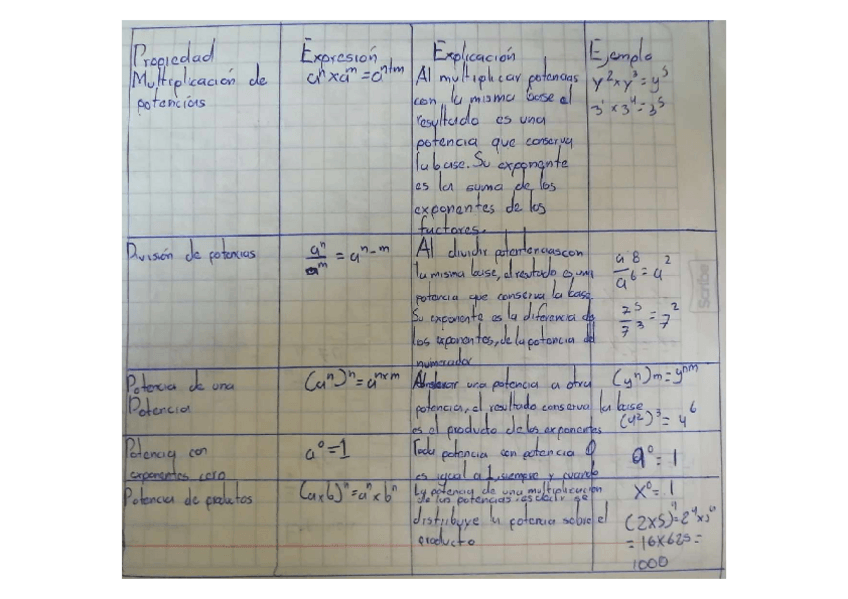 Propiedad
Expresión
Explicación
Ejemplo
Multiplicación de
potencias
aⁿxaᵐ=aⁿ⁺ᵐ
Al multiplicar potencias
con la misma base el
resultado es una
potencia que conserva
la base. Su exponente
es la suma de los
exponentes de los
factores.
y²xy³=y⁵
3¹x3⁴=3⁵
División de potencias
aⁿ/aᵐ = aⁿ⁻ᵐ
Al dividir con
la misma base, el es una
potencia que conserva la base.
Su exponente es la diferencia de
los exponentes, de la potencia del
numerador
a⁸/a⁶=a²
7⁵/7³=7²
Potencia de una
Potencia
(aⁿ)ⁿ=aⁿˣᵐ
una potencia a otra
potencia, el resultado conserva la base
es el producto de los exponentes
(yⁿ)m=yⁿᵐ
(4²)³=4⁶
Potencia con
exponentes cero
a⁰=1
Toda potencia con potencia 0
es igual a 1, siempre y cuando
a⁰=1
Potencia de productos
(axb)ⁿ=aⁿxbⁿ
La potencia de una multiplicación
de un potencias, es decir se
distribuye la potencia sobre el
producto
x⁰=1
(2x5)⁴=2⁴x5⁴
=16x625=
1000
Scribe